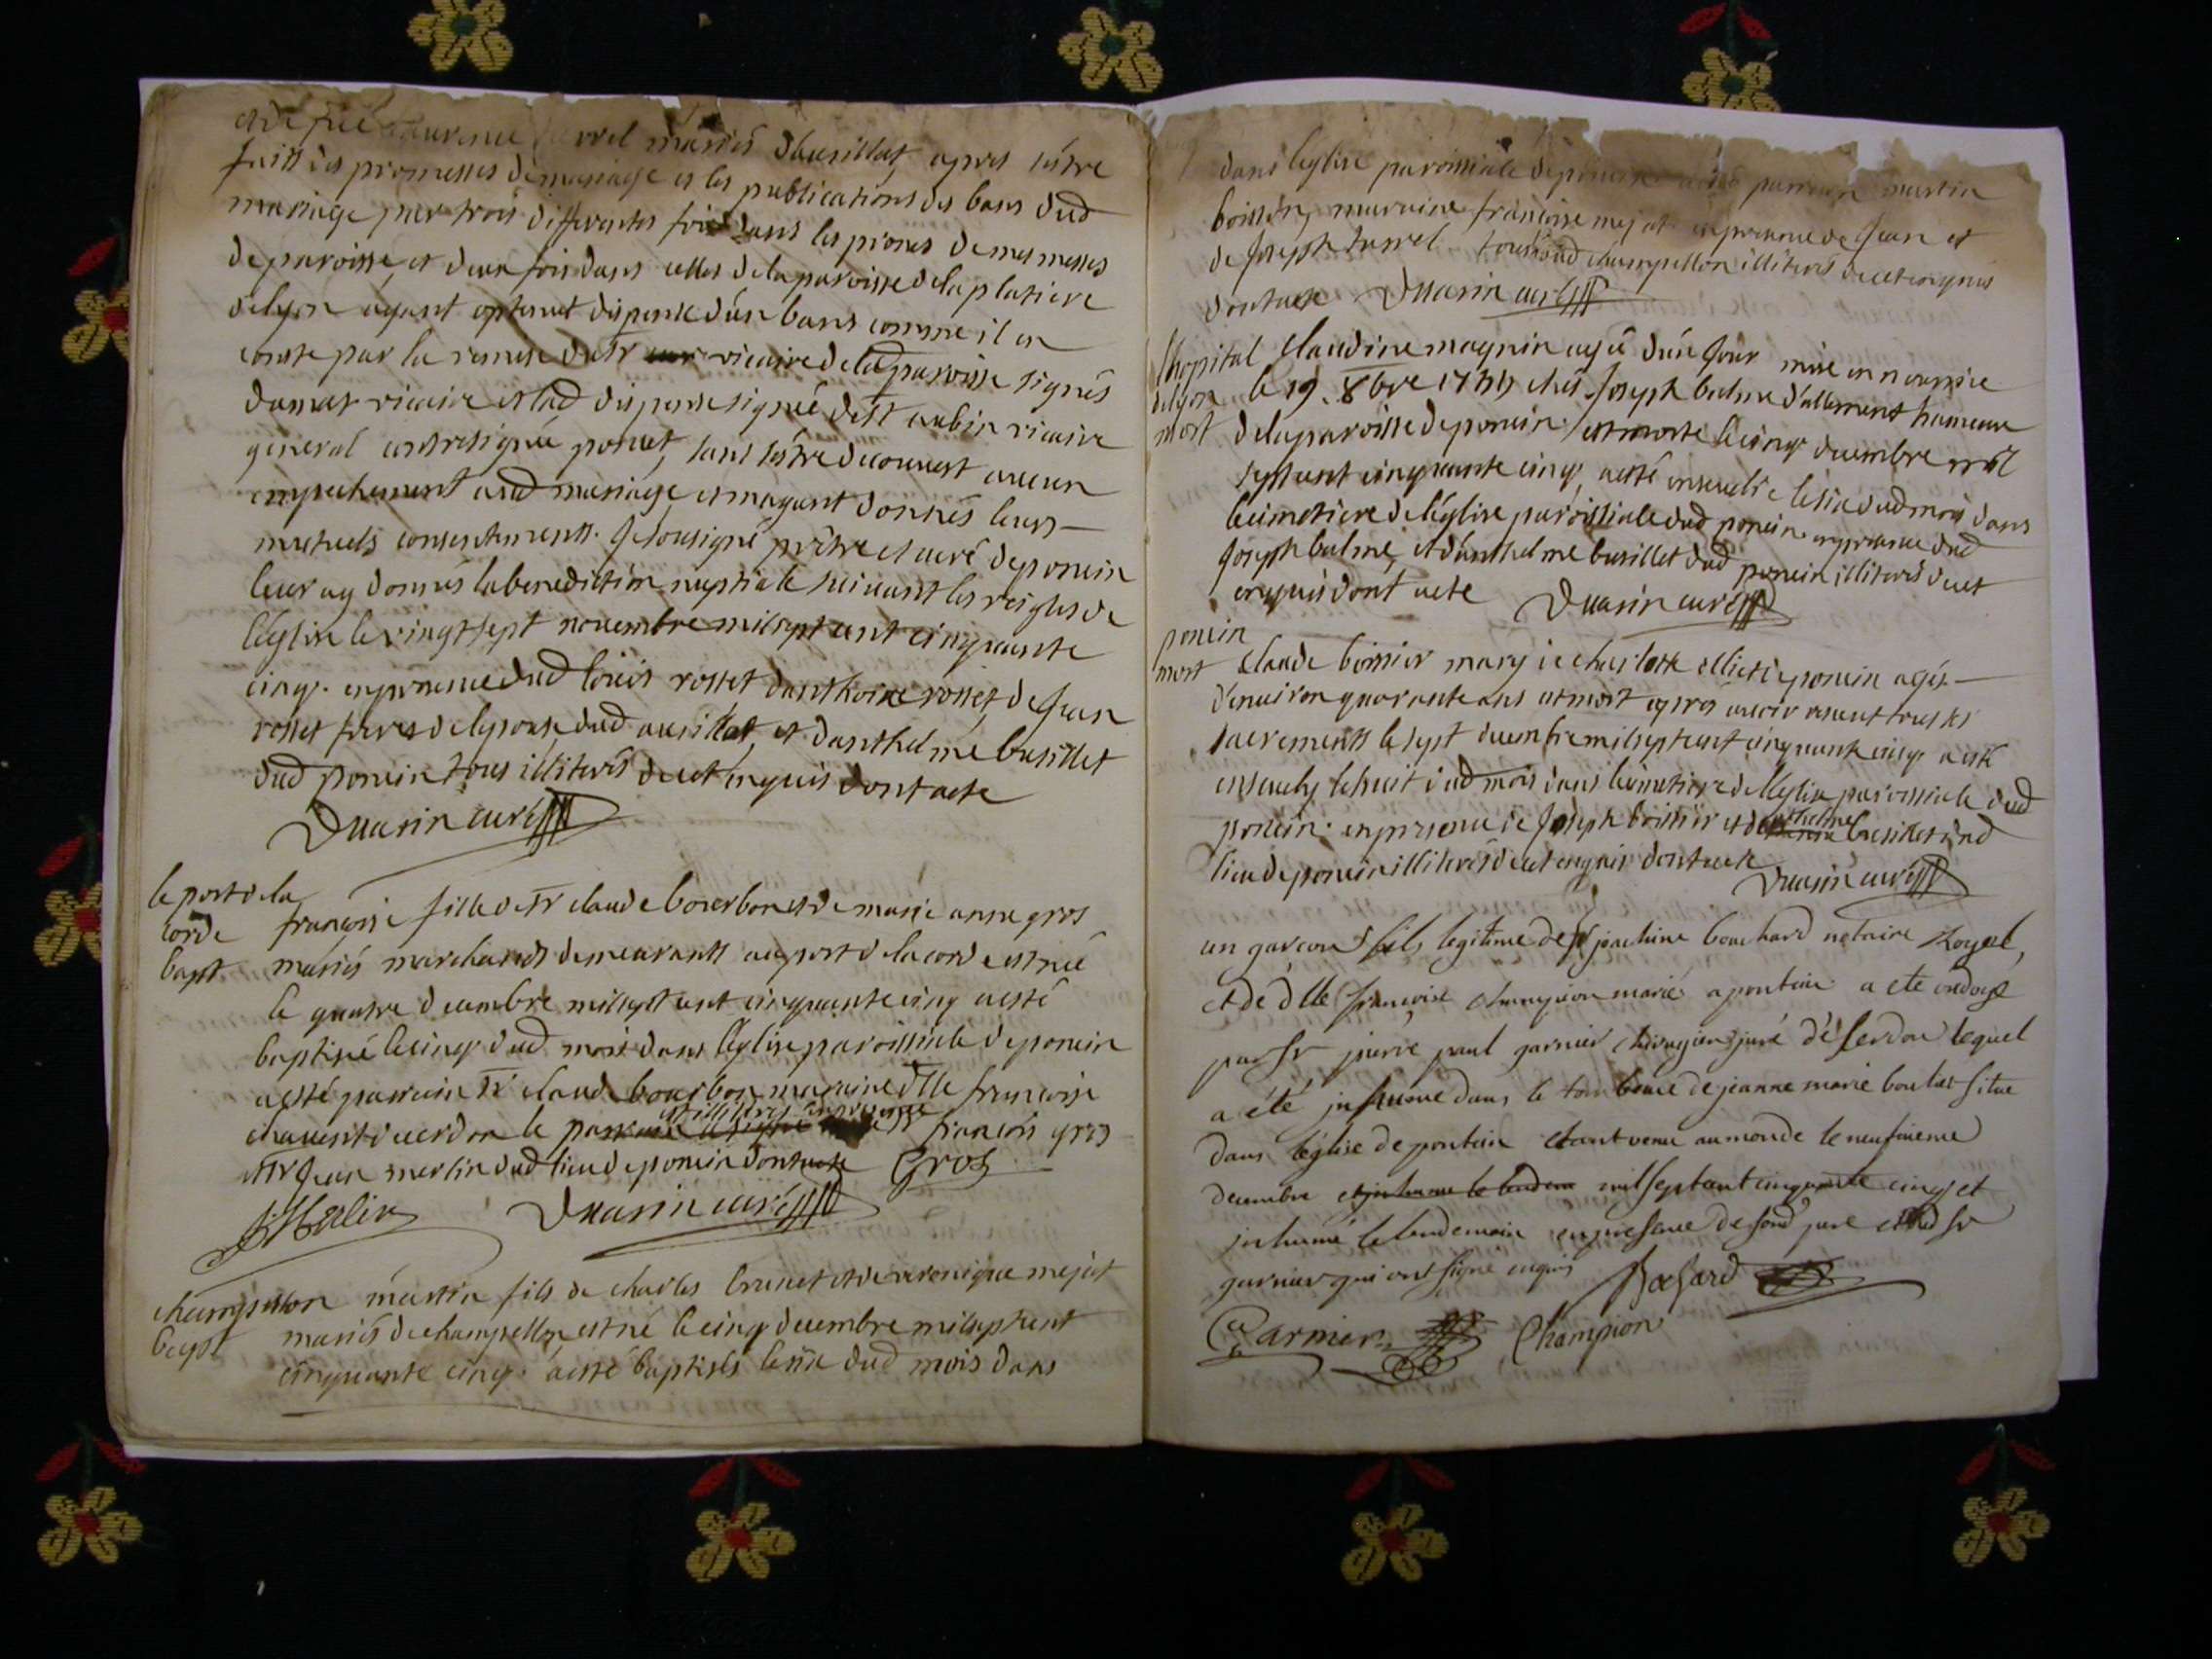 et de feüe laurence mariés d'husillat, apres s'estre
faitt des promesses de mariage et les publications des bans dud
mariage par trois differantes fois dans les prones de mes messes
de paroisse, et deux fois dans celles de la paroisse de la platiere
de lyon ayant optenut dispense d'un bans comme il en
conste par la remise du Sr vicaire de lad paroisse signés
dumas vicaire et lad dispense signée de St aubin vicaire
general contresignée poncet, sans s'estre decouvert aucun
empechement aud mariage et m'ayant donnés leurs
mutuels consentements. Je sousigné prêtre et curé de poncin
leur ay donnés la benediction nuptiale suivant les reigles de
l'église le vingt sept novembre mil sept cent cinquante
cinq. en presence dud loüis rosset d'anthoine rosset, de Jean
rosset freres de l'epouse dud et d'anthelme busillet
dud poncin tous illiterés de cet enquis dont acte
Duarin curé
le port de la
corde
bapt
françoise fille de Sr claude bourbon et de marie anne gros
mariés marchands demeurants au port de la corde est née
le quatre decembre mil sept cent cinquante cinq a esté
baptisé le cinq dud mois dans l'église paroissiale de poncin
a esté parrain Sr claude bourbon marraine dlle françoise
chavent de cerdon le est illitéré en presence Sr françois gros
et Sr Jean merlin dud lieu de poncin dont acte Gros
J Merlin Duarin curé
champellon
bapt
martin fils de charles brunet et de veronique mejat
mariés de champellon est né le cinq decembre mil sept cent
cinquante cinq. a esté baptisés le six dud mois dans
dans l'église paroissiale de poncin a esté parrain martin
boisson, marraine françoise mejat en presence de Jean et
de Joseph tous dud champellon illiterés de cet enquis
dont acte Duarin curé
l'hopital
de lyon
mort
Claudine magnin agée d'un Jour mise en nourrice
le 19. 8bre chés Joseph balme d'allement hameau
de la paroisse de poncin est morte le cinq decembre mil
sept cent cinquante cinq, a esté ensevelie le six dud mois dans
le cimetiere de l'église paroissiale dud poncin en presence dud
Joseph balme, et d'anthelme busillet dud poncin illiterés de cet
enquis dont acte Duarin curé
poncin
mort
Claude boissier mary de charlotte de poncin agés
d'environ quarante ans est mort apres avoir receut tous les
sacrements le sept decembre mil sept cent cinquante cinq. a esté
ensevely le huit dud mois dans le cimetiere de l'église paroissiale dud
poncin. en presence de Joseph boissier et d'anthelme busillet dud
lieu de poncin illiterés de cet enquis dont acte
Duarin curé
un garcon fils legitime de Sr joachime bouchard notaire Royal,
et de dlle françoise champion marié a pontcin a eté ondoyé
par Sr pierre paul garnier chirurgien juré de Cerdon lequel
a été inhumé dans le tombeau de jeanne marie situé
dans l'église de pontcin etant venu au monde le neufvieme
decembre et inhumé le lendem mil sept cent cinquante cinq et
inhumé le lendemain en presence de sond pere et dud Sr
garnier qui ont signé enquis
Garnier Champion